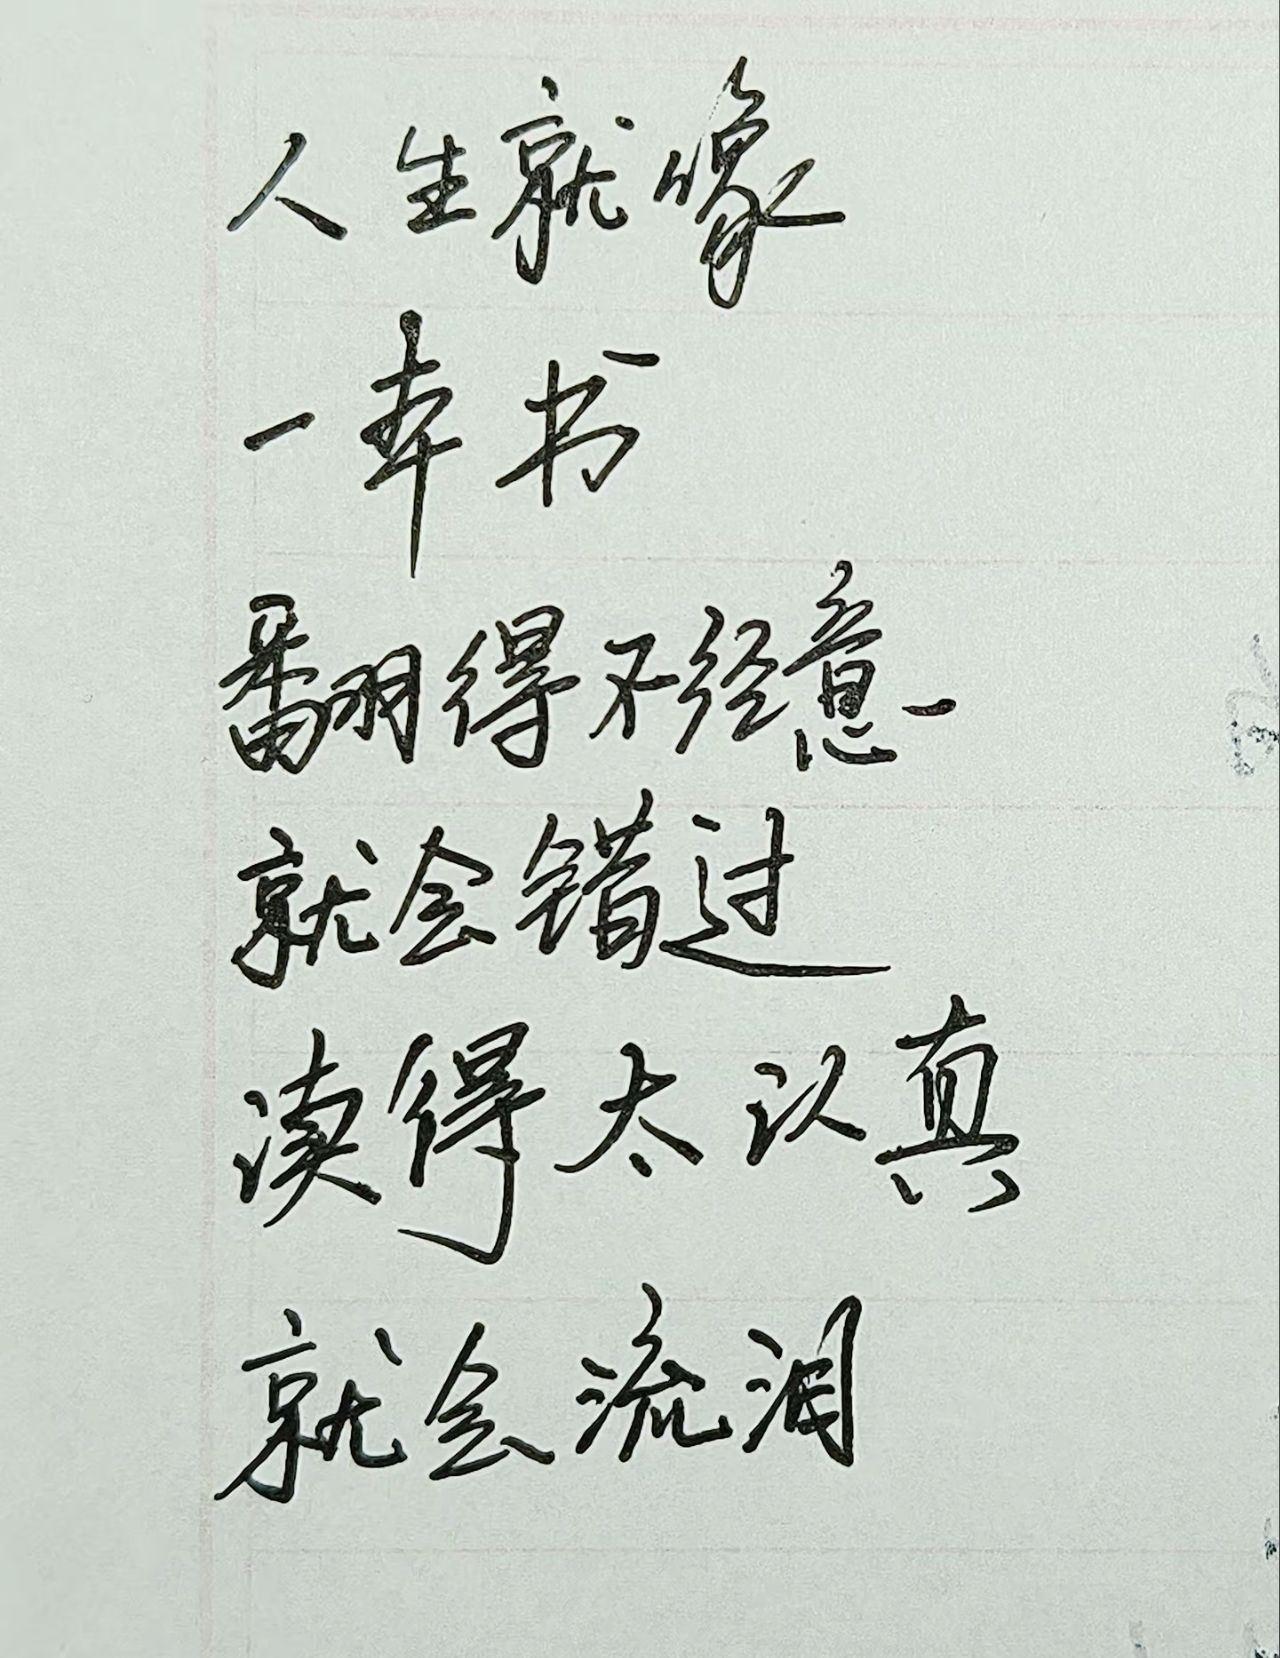 人生就像
一本书
翻得不经意
就会错过
读得太认真
就会流泪